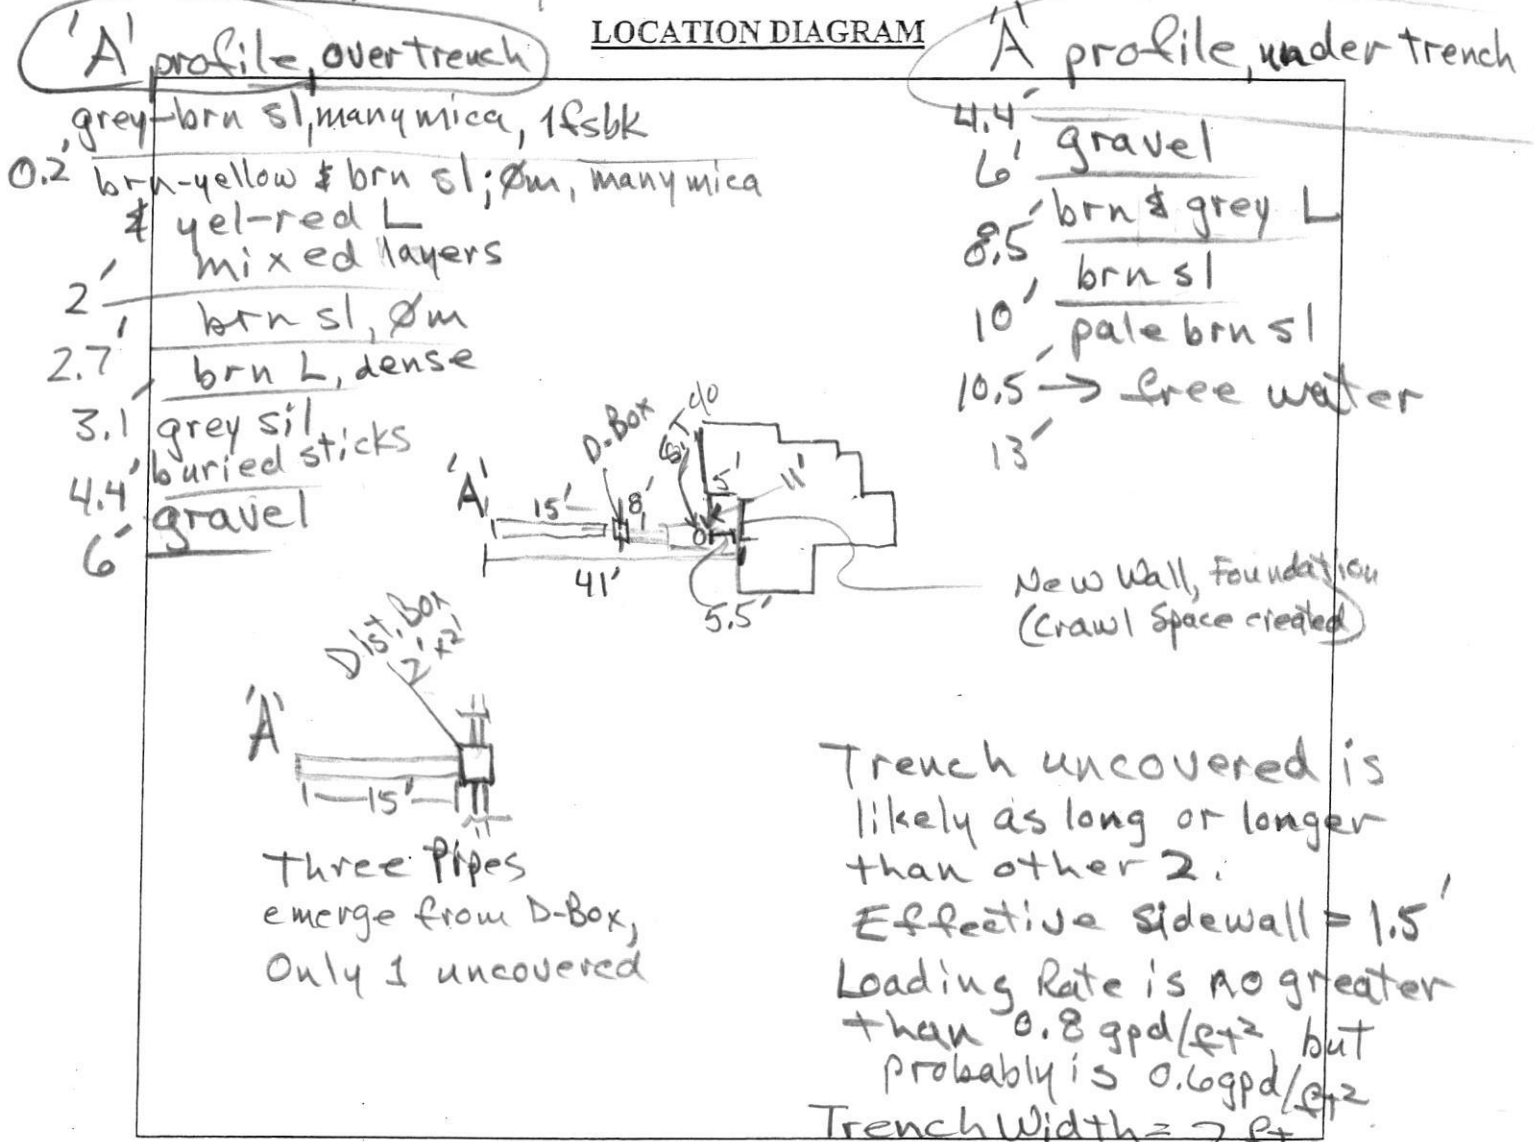 LOCATION DIAGRAM
'A' profile, over trench
grey-brn sl, many mica, 1fsbk
0.2'
brn-yellow & brn sl; Øm, many mica
& yel-red L
mixed layers
2'
brn sl, Øm
2.7'
brn L, dense
3.1'
grey sil
buried sticks
4.4'
gravel
6'
'A' profile, under trench
4.4'
gravel
6'
brn & grey L
8.5'
brn sl
10'
pale brn sl
10.5' → free water
13'
'A'
15'
D-Box
8'
S.T.
c/o
5'
11'
41'
5.5'
New Wall, Foundation
(Crawl Space created)
Dist. Box
2'x2'
'A'
15'
Three Pipes
emerge from D-Box,
Only 1 uncovered
Trench uncovered is
likely as long or longer
than other 2.
Effective Sidewall = 1.5'
Loading Rate is no greater
than 0.8 gpd/ft², but
probably is 0.6 gpd/ft²
Trench Width =